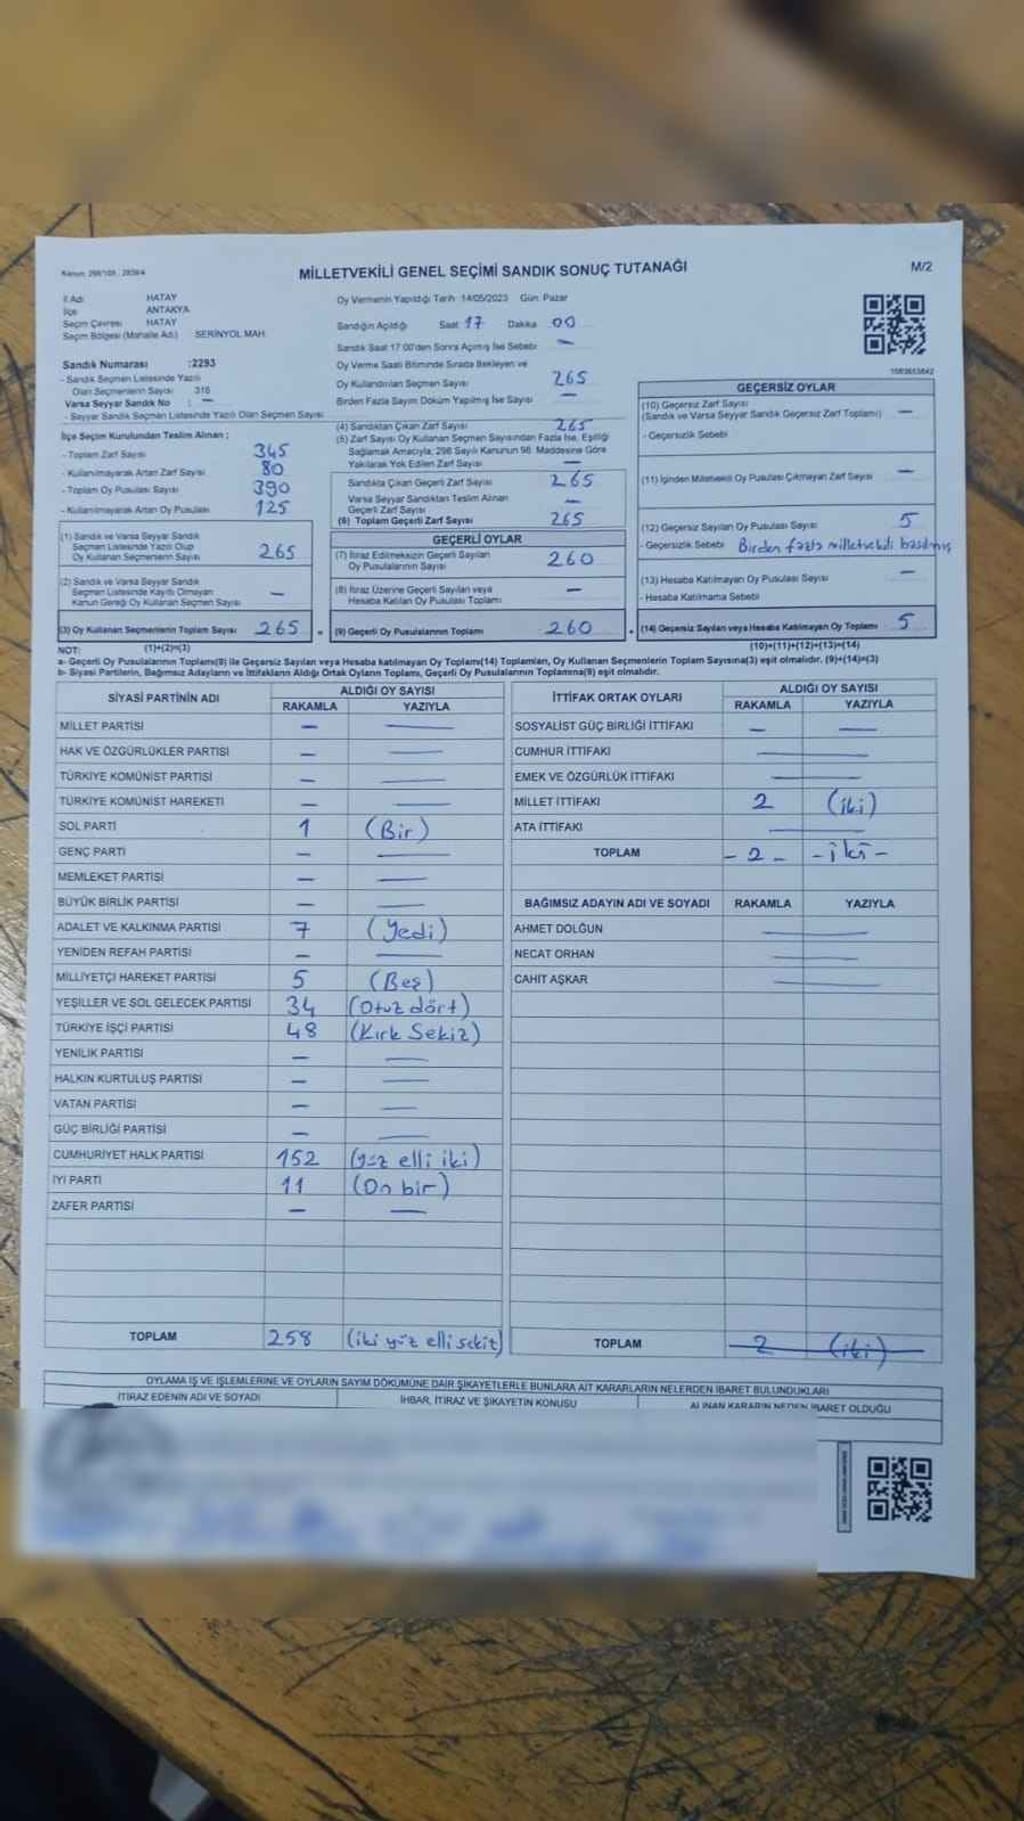 Kanun: 298/105, 2839/4
MİLLETVEKİLİ GENEL SEÇİMİ SANDIK SONUÇ TUTANAĞI
M/2
İl Adı HATAY
İlçe ANTAKYA
Seçim Çevresi HATAY
Seçim Bölgesi (Mahalle Adı) SERİNYOL MAH.
Sandık Numarası :2293
- Sandık Seçmen Listesinde Yazılı
Olan Seçmenlerin Sayısı 316
Varsa Seyyar Sandık No : —
- Seyyar Sandık Seçmen Listesinde Yazılı Olan Seçmen Sayısı
İlçe Seçim Kurulundan Teslim Alınan ;
- Toplam Zarf Sayısı 345
- Kullanılmayarak Artan Zarf Sayısı 80
- Toplam Oy Pusulası Sayısı 390
- Kullanılmayarak Artan Oy Pusulası 125
(1) Sandık ve Varsa Seyyar Sandık
Seçmen Listesinde Yazılı Olup
Oy Kullanan Seçmenlerin Sayısı 265
(2) Sandık ve Varsa Seyyar Sandık
Seçmen Listesinde Kayıtlı Olmayan
Kanun Gereği Oy Kullanan Seçmen Sayısı —
(3) Oy Kullanan Seçmenlerin Toplam Sayısı 265
(1)+(2)=(3)
Oy Vermenin Yapıldığı Tarih 14/05/2023 Gün: Pazar
Sandığın Açıldığı Saat 17 Dakika 00
Sandık Saat 17:00'den Sonra Açılmış İse Sebebi —
Oy Verme Saati Bitiminde Sırada Bekleyen ve
Oy Kullandırılan Seçmen Sayısı 265
Birden Fazla Sayım Döküm Yapılmış İse Sayısı —
(4) Sandıktan Çıkan Zarf Sayısı 265
(5) Zarf Sayısı Oy Kullanan Seçmen Sayısından Fazla İse, Eşitliği
Sağlamak Amacıyla, 298 Sayılı Kanunun 98. Maddesine Göre
Yakılarak Yok Edilen Zarf Sayısı —
Sandıkta Çıkan Geçerli Zarf Sayısı 265
Varsa Seyyar Sandıktan Teslim Alınan
Geçerli Zarf Sayısı —
(6) Toplam Geçerli Zarf Sayısı 265
GEÇERLİ OYLAR
(7) İtiraz Edilmeksizin Geçerli Sayılan
Oy Pusulalarının Sayısı 260
(8) İtiraz Üzerine Geçerli Sayılan veya
Hesaba Katılan Oy Pusulası Toplamı —
(9) Geçerli Oy Pusulalarının Toplamı 260
GEÇERSİZ OYLAR
(10) Geçersiz Zarf Sayısı
(Sandık ve Varsa Seyyar Sandık Geçersiz Zarf Toplamı) —
- Geçersizlik Sebebi
(11) İçinden Milletvekili Oy Pusulası Çıkmayan Zarf Sayısı —
(12) Geçersiz Sayılan Oy Pusulası Sayısı 5
- Geçersizlik Sebebi Birden fazla milletvekili basılmış
(13) Hesaba Katılmayan Oy Pusulası Sayısı —
- Hesaba Katılmama Sebebi
(14) Geçersiz Sayılan veya Hesaba Katılmayan Oy Toplamı 5
(10)+(11)+(12)+(13)=(14)
NOT:
a- Geçerli Oy Pusulalarının Toplamı(9) ile Geçersiz Sayılan veya Hesaba katılmayan Oy Toplamı(14) Toplamları, Oy Kullanan Seçmenlerin Toplam Sayısına(3) eşit olmalıdır. (9)+(14)=(3)
b- Siyasi Partilerin, Bağımsız Adayların ve İttifakların Aldığı Ortak Oyların Toplamı, Geçerli Oy Pusulalarının Toplamına(9) eşit olmalıdır.
SİYASİ PARTİNİN ADI ALDIĞI OY SAYISI
RAKAMLA YAZIYLA
MİLLET PARTİSİ — —
HAK VE ÖZGÜRLÜKLER PARTİSİ — —
TÜRKİYE KOMÜNİST PARTİSİ — —
TÜRKİYE KOMÜNİST HAREKETİ — —
SOL PARTİ 1 (Bir)
GENÇ PARTİ — —
MEMLEKET PARTİSİ — —
BÜYÜK BİRLİK PARTİSİ — —
ADALET VE KALKINMA PARTİSİ 7 (Yedi)
YENİDEN REFAH PARTİSİ — —
MİLLİYETÇİ HAREKET PARTİSİ 5 (Beş)
YEŞİLLER VE SOL GELECEK PARTİSİ 34 (Otuz dört)
TÜRKİYE İŞÇİ PARTİSİ 48 (Kırk Sekiz)
YENİLİK PARTİSİ — —
HALKIN KURTULUŞ PARTİSİ — —
VATAN PARTİSİ — —
GÜÇ BİRLİĞİ PARTİSİ — —
CUMHURİYET HALK PARTİSİ 152 (yüz elli iki)
İYİ PARTİ 11 (On bir)
ZAFER PARTİSİ — —
TOPLAM 258 (iki yüz elli sekiz)
İTTİFAK ORTAK OYLARI ALDIĞI OY SAYISI
RAKAMLA YAZIYLA
SOSYALİST GÜÇ BİRLİĞİ İTTİFAKI — —
CUMHUR İTTİFAKI —
EMEK VE ÖZGÜRLÜK İTTİFAKI —
MİLLET İTTİFAKI 2 (iki)
ATA İTTİFAKI —
TOPLAM - 2 - - iki -
BAĞIMSIZ ADAYIN ADI VE SOYADI RAKAMLA YAZIYLA
AHMET DOLĞUN —
NECAT ORHAN —
CAHİT AŞKAR —
TOPLAM 2 (iki)
OYLAMA İŞ VE İŞLEMLERİNE VE OYLARIN SAYIM DÖKÜMÜNE DAİR ŞİKAYETLERLE BUNLARA AİT KARARLARIN NELERDEN İBARET BULUNDUKLARI
İTİRAZ EDENİN ADI VE SOYADI İHBAR, İTİRAZ VE ŞİKAYETİN KONUSU ALINAN KARARIN NEDEN İBARET OLDUĞU